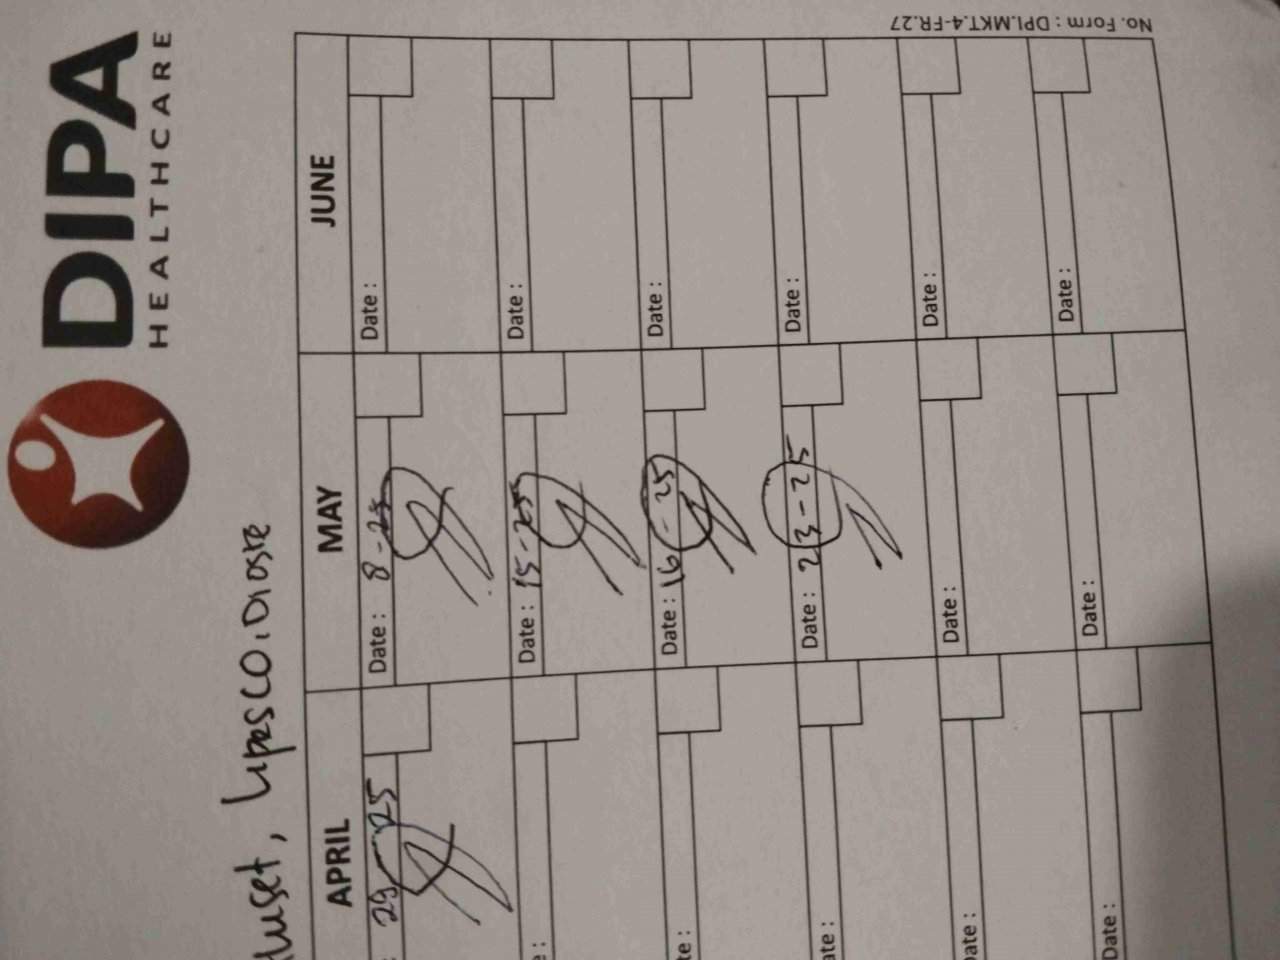 DIPA
HEALTHCARE
Lipesco, Dioste
APRIL MAY JUNE
29 - 25 Date : 8 - 25 Date :
Date : 15 - 25 Date :
Date : 16 - 25 Date :
Date : 23 - 25 Date :
Date : Date :
Date : Date : Date :
No. Form : DPI.MKT.4-FR.27